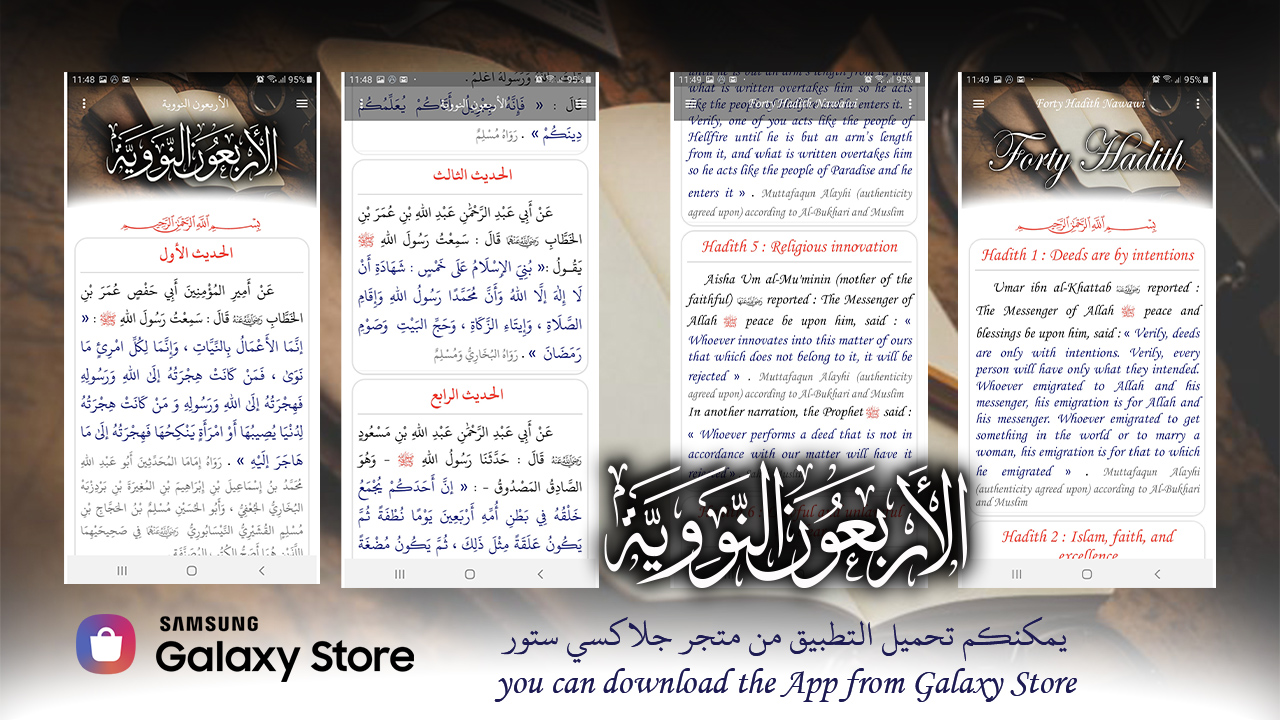 11:48
95%
الأربعون النووية
الأربعون النووية
بِسْمِ اللَّهِ الرَّحْمَٰنِ الرَّحِيمِ
الحديث الأول
عَنْ أَمِيرِ المُؤْمِنِينَ أَبِي حَفْصٍ عُمَرَ بْنِ
الخَطَّابِ رَضِيَ اللَّهُ عَنْهُ قَالَ : سَمِعْتُ رَسُولَ اللهِ ﷺ : «
إنَّمَا الأَعْمَالُ بِالنِّيَّاتِ ، وَإِنَّمَا لِكُلِّ امْرِئٍ مَا
نَوَىٰ ، فَمَنْ كَانَتْ هِجْرَتُهُ إِلَىٰ اللهِ وَرَسُولِهِ
فَهِجْرَتُهُ إِلَىٰ اللهِ وَرَسُولِهِ وَ مَنْ كَانَتْ هِجْرَتُهُ
لِدُنْيَا يُصِيبُهَا أَوْ امْرَأَةٍ يَنْكِحُهَا فَهِجْرَتُهُ إِلَىٰ مَا
هَاجَرَ إِلَيْهِ » . رَوَاهُ إِمَامَا المُحَدِّثِينَ أَبُو عَبْدِ اللهِ
مُحَمَّدُ بنُ إِسْمَاعِيلَ بْنِ إِبْرَاهِيمَ بْنِ المُغِيرَةِ بْنِ بَرْدِزْبَهْ
البُخَارِيُّ الجُعْفِيُّ ، وَأَبُو الحُسَيْنِ مُسْلِمُ بْنُ الحَجَّاجِ بْنِ
مُسْلِمٍ القُشَيْرِيُّ النَّيْسَابُورِيُّ فِي صَحِيحَيْهِمَا
11:48
95%
قَالَ : اللهُ وَرَسُولُهُ أَعْلَمُ .
الأربعون النووية
قَالَ : « فَإِنَّهُ جِبْرِيلُ أَتَاكُمْ يُعَلِّمُكُمْ
دِينَكُمْ » . رَوَاهُ مُسْلِمٌ
الحديث الثالث
عَنْ أَبِي عَبْدِ الرَّحْمَٰنِ عَبْدِ اللهِ بْنِ عُمَرَ بْنِ
الخَطَّابِ رَضِيَ اللَّهُ عَنْهُمَا قَالَ : سَمِعْتُ رَسُولَ اللهِ ﷺ
يَقُولُ :« بُنِيَ الإِسْلَامُ عَلَىٰ خَمْسٍ : شَهَادَةِ أَنْ
لَا إِلٰهَ إِلَّا اللهُ وَأَنَّ مُحَمَّدًا رَسُولُ اللهِ وَإِقَامِ
الصَّلَاةِ ، وَإِيتَاءِ الزَّكَاةِ ، وَحَجِّ البَيْتِ وَصَوْمِ
رَمَضَانَ » . رَوَاهُ البُخَارِيُّ وَمُسْلِمٌ
الحديث الرابع
عَنْ أَبِي عَبْدِ الرَّحْمَٰنِ عَبْدِ اللهِ بْنِ مَسْعُودٍ
رَضِيَ اللَّهُ عَنْهُ قَالَ : حَدَّثَنَا رَسُولُ اللهِ ﷺ - وَهُوَ
الصَّادِقُ المَصْدُوقُ - : « إِنَّ أَحَدَكُمْ يُجْمَعُ
خَلْقُهُ فِي بَطْنِ أُمِّهِ أَرْبَعِينَ يَوْمًا نُطْفَةً ثُمَّ
يَكُونُ عَلَقَةً مِثْلَ ذَلِكَ ، ثُمَّ يَكُونُ مُضْغَةً
11:49
95%
what is written overtakes him so he acts
Forty Hadith Nawawi
like the people enters it .
Verily, one of you acts like the people of
Hellfire until he is but an arm's length
from it, and what is written overtakes him
so he acts like the people of Paradise and he
enters it » . Muttafaqun Alayhi (authenticity
agreed upon) according to Al-Bukhari and Muslim
Hadith 5 : Religious innovation
Aisha Um al-Mu'minin (mother of the
faithful) رضي الله عنها reported : The Messenger of
Allah ﷺ peace be upon him, said : «
Whoever innovates into this matter of ours
that which does not belong to it, it will be
rejected » . Muttafaqun Alayhi (authenticity
agreed upon) according to Al-Bukhari and Muslim
In another narration, the Prophet ﷺ said :
« Whoever performs a deed that is not in
accordance with our matter will have it
11:49
95%
Forty Hadith Nawawi
Forty Hadith
بِسْمِ اللَّهِ الرَّحْمَٰنِ الرَّحِيمِ
Hadith 1 : Deeds are by intentions
Umar ibn al-Khattab رضي الله عنه reported :
The Messenger of Allah ﷺ peace and
blessings be upon him, said : « Verily, deeds
are only with intentions. Verily, every
person will have only what they intended.
Whoever emigrated to Allah and his
messenger, his emigration is for Allah and
his messenger. Whoever emigrated to get
something in the world or to marry a
woman, his emigration is for that to which
he emigrated » . Muttafaqun Alayhi
(authenticity agreed upon) according to Al-Bukhari
and Muslim
Hadith 2 : Islam, faith, and
excellence
الأَرْبَعُونَ النَّوَوِيَّة
SAMSUNG
Galaxy Store
يمكنكم تحميل التطبيق من متجر جلاكسي ستور
you can download the App from Galaxy Store